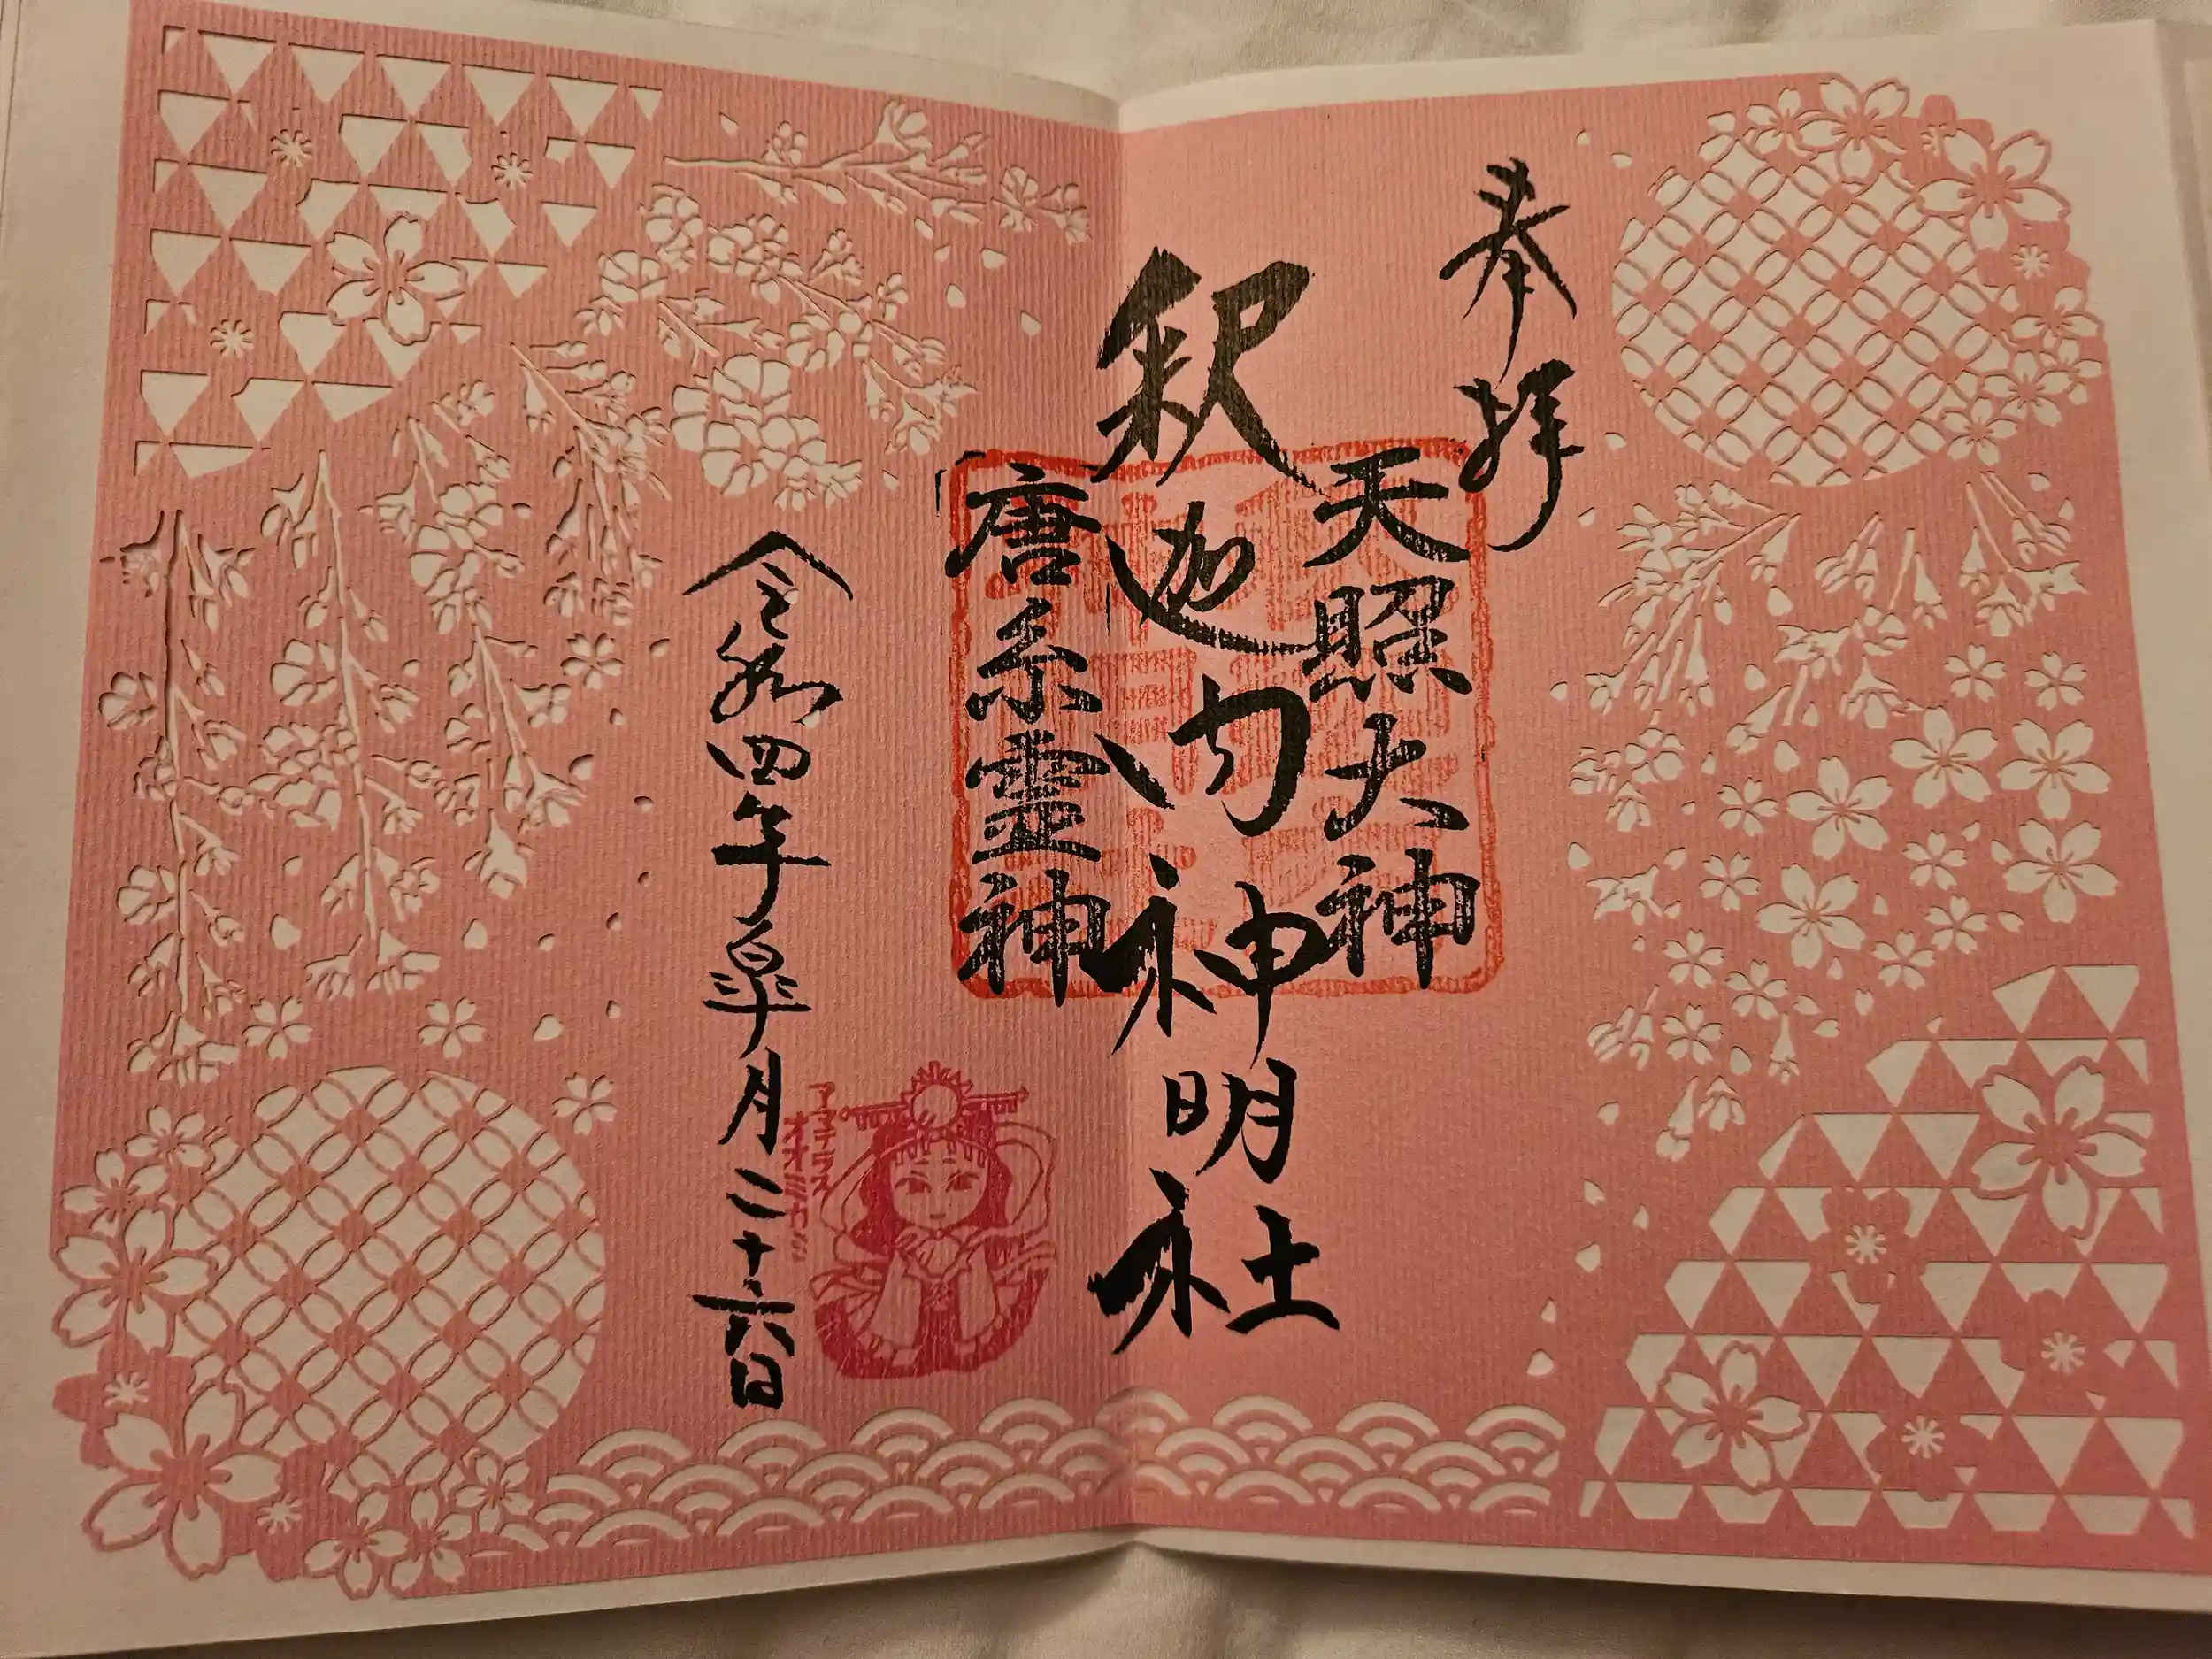 奉拝
天照大神
釈迦内神明社
唐糸霊神
令和四年皐月二十六日
アマテラス
オオミカミ